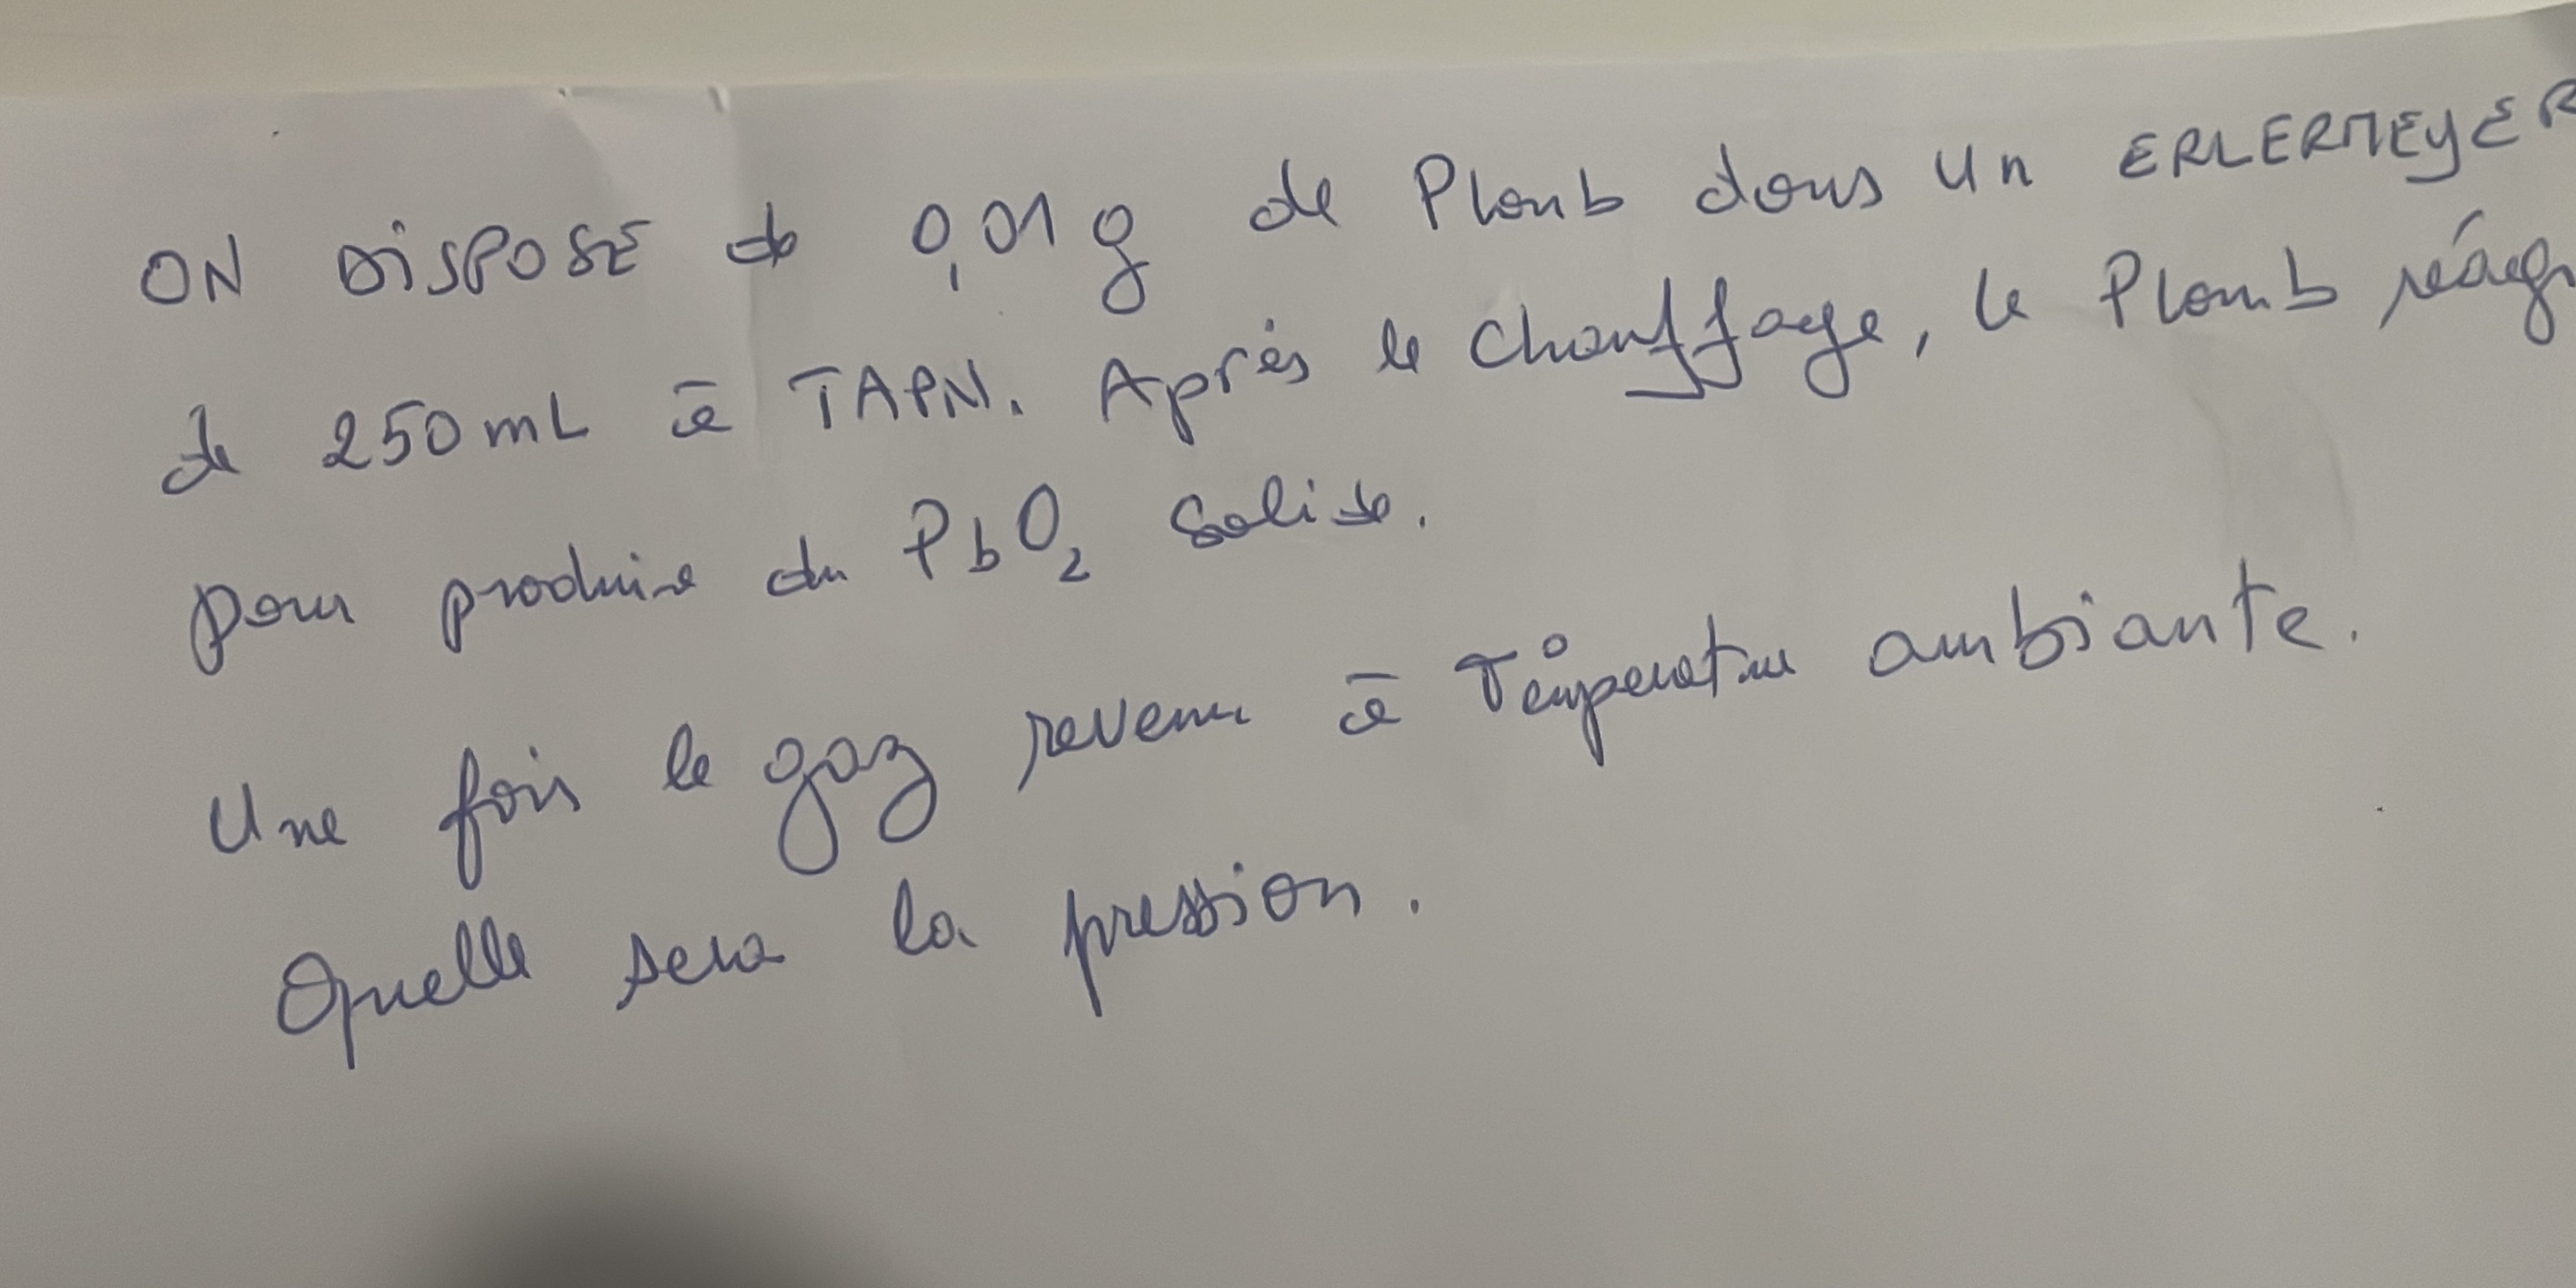 ON DISPOSE de 0,01 g de Plomb dans un ERLERMEYER
de 250 mL à TAPN. Après le chauffage, le Plomb réagi
pour produire du PbO2 solide.
Une fois le gaz revenu à Température ambiante.
Quelle sera la pression.